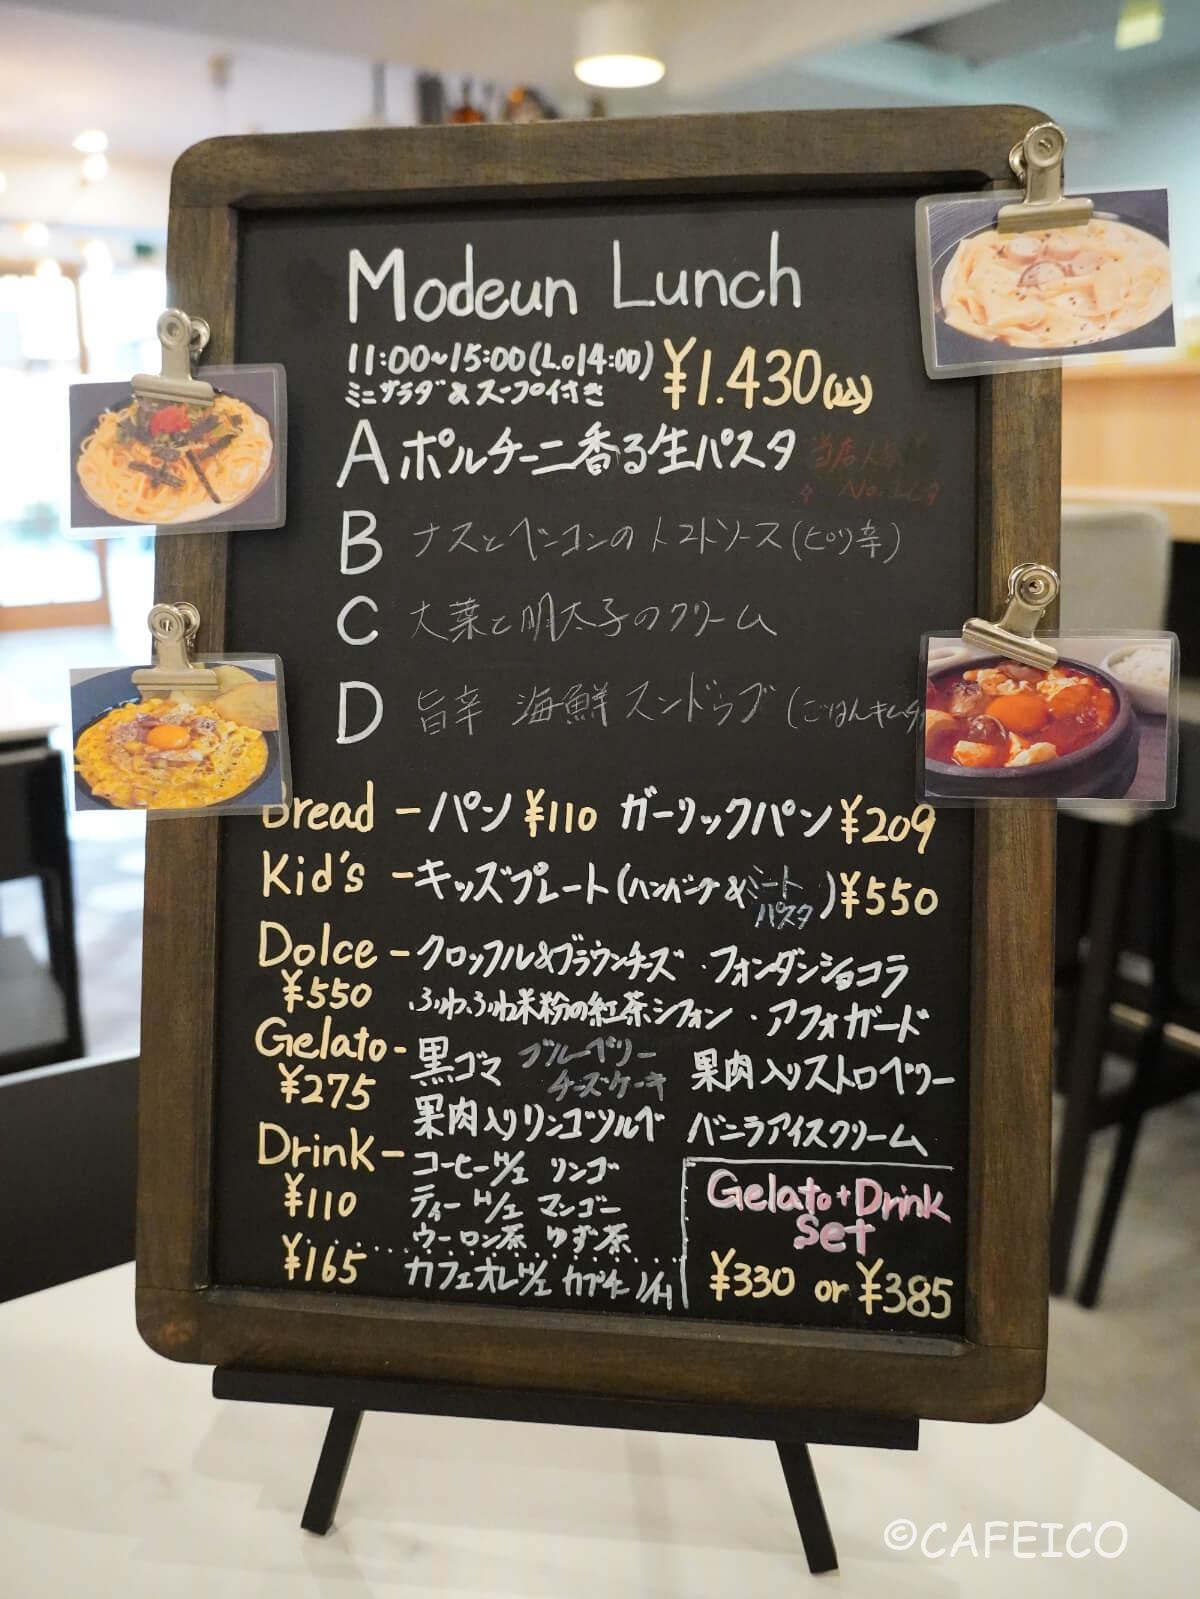 Modeun Lunch
11:00~15:00(L.o14:00) ¥1.430(込)
ミニサラダ&スープ付き
A ポルチーニ香る生パスタ 当店人気
No.
B ナスとベーコンのトマトソース(ピリ辛)
C 大葉と明太子のクリーム
D 旨辛 海鮮スンドゥブ (ごはん キムチ
Bread - パン ¥110 ガーリックパン ¥209
Kid's - キッズプレート(ハンバーグ&ミートパスタ) ¥550
Dolce - クロッフル&ブラウンチーズ ・フォンダンショコラ
¥550 ・ふわふわ米粉の紅茶シフォン ・アフォガード
Gelato - 黒ゴマ ブルーベリーチーズケーキ 果肉入りストロベリー
¥275 果肉入りリンゴソルベ バニラアイスクリーム
Drink - コーヒーH/I リンゴ
¥110 ティーH/I マンゴー
ウーロン茶 ゆず茶
¥165 カフェオレH/I カプチーノH
Gelato+Drink
Set
¥330 or ¥385
©CAFEICO